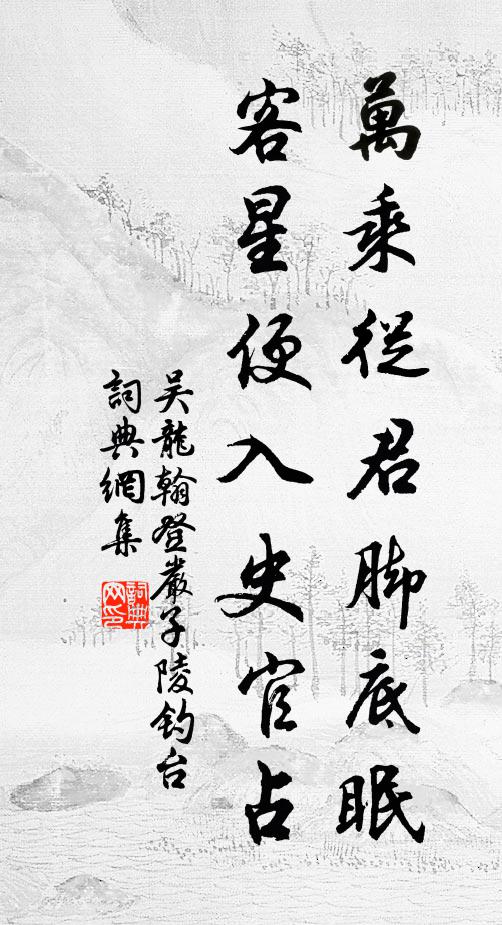 萬乘從君脚底眠
客星便入史官占
吴龍翰登嚴子陵钓台
詞典網集
詞典网印